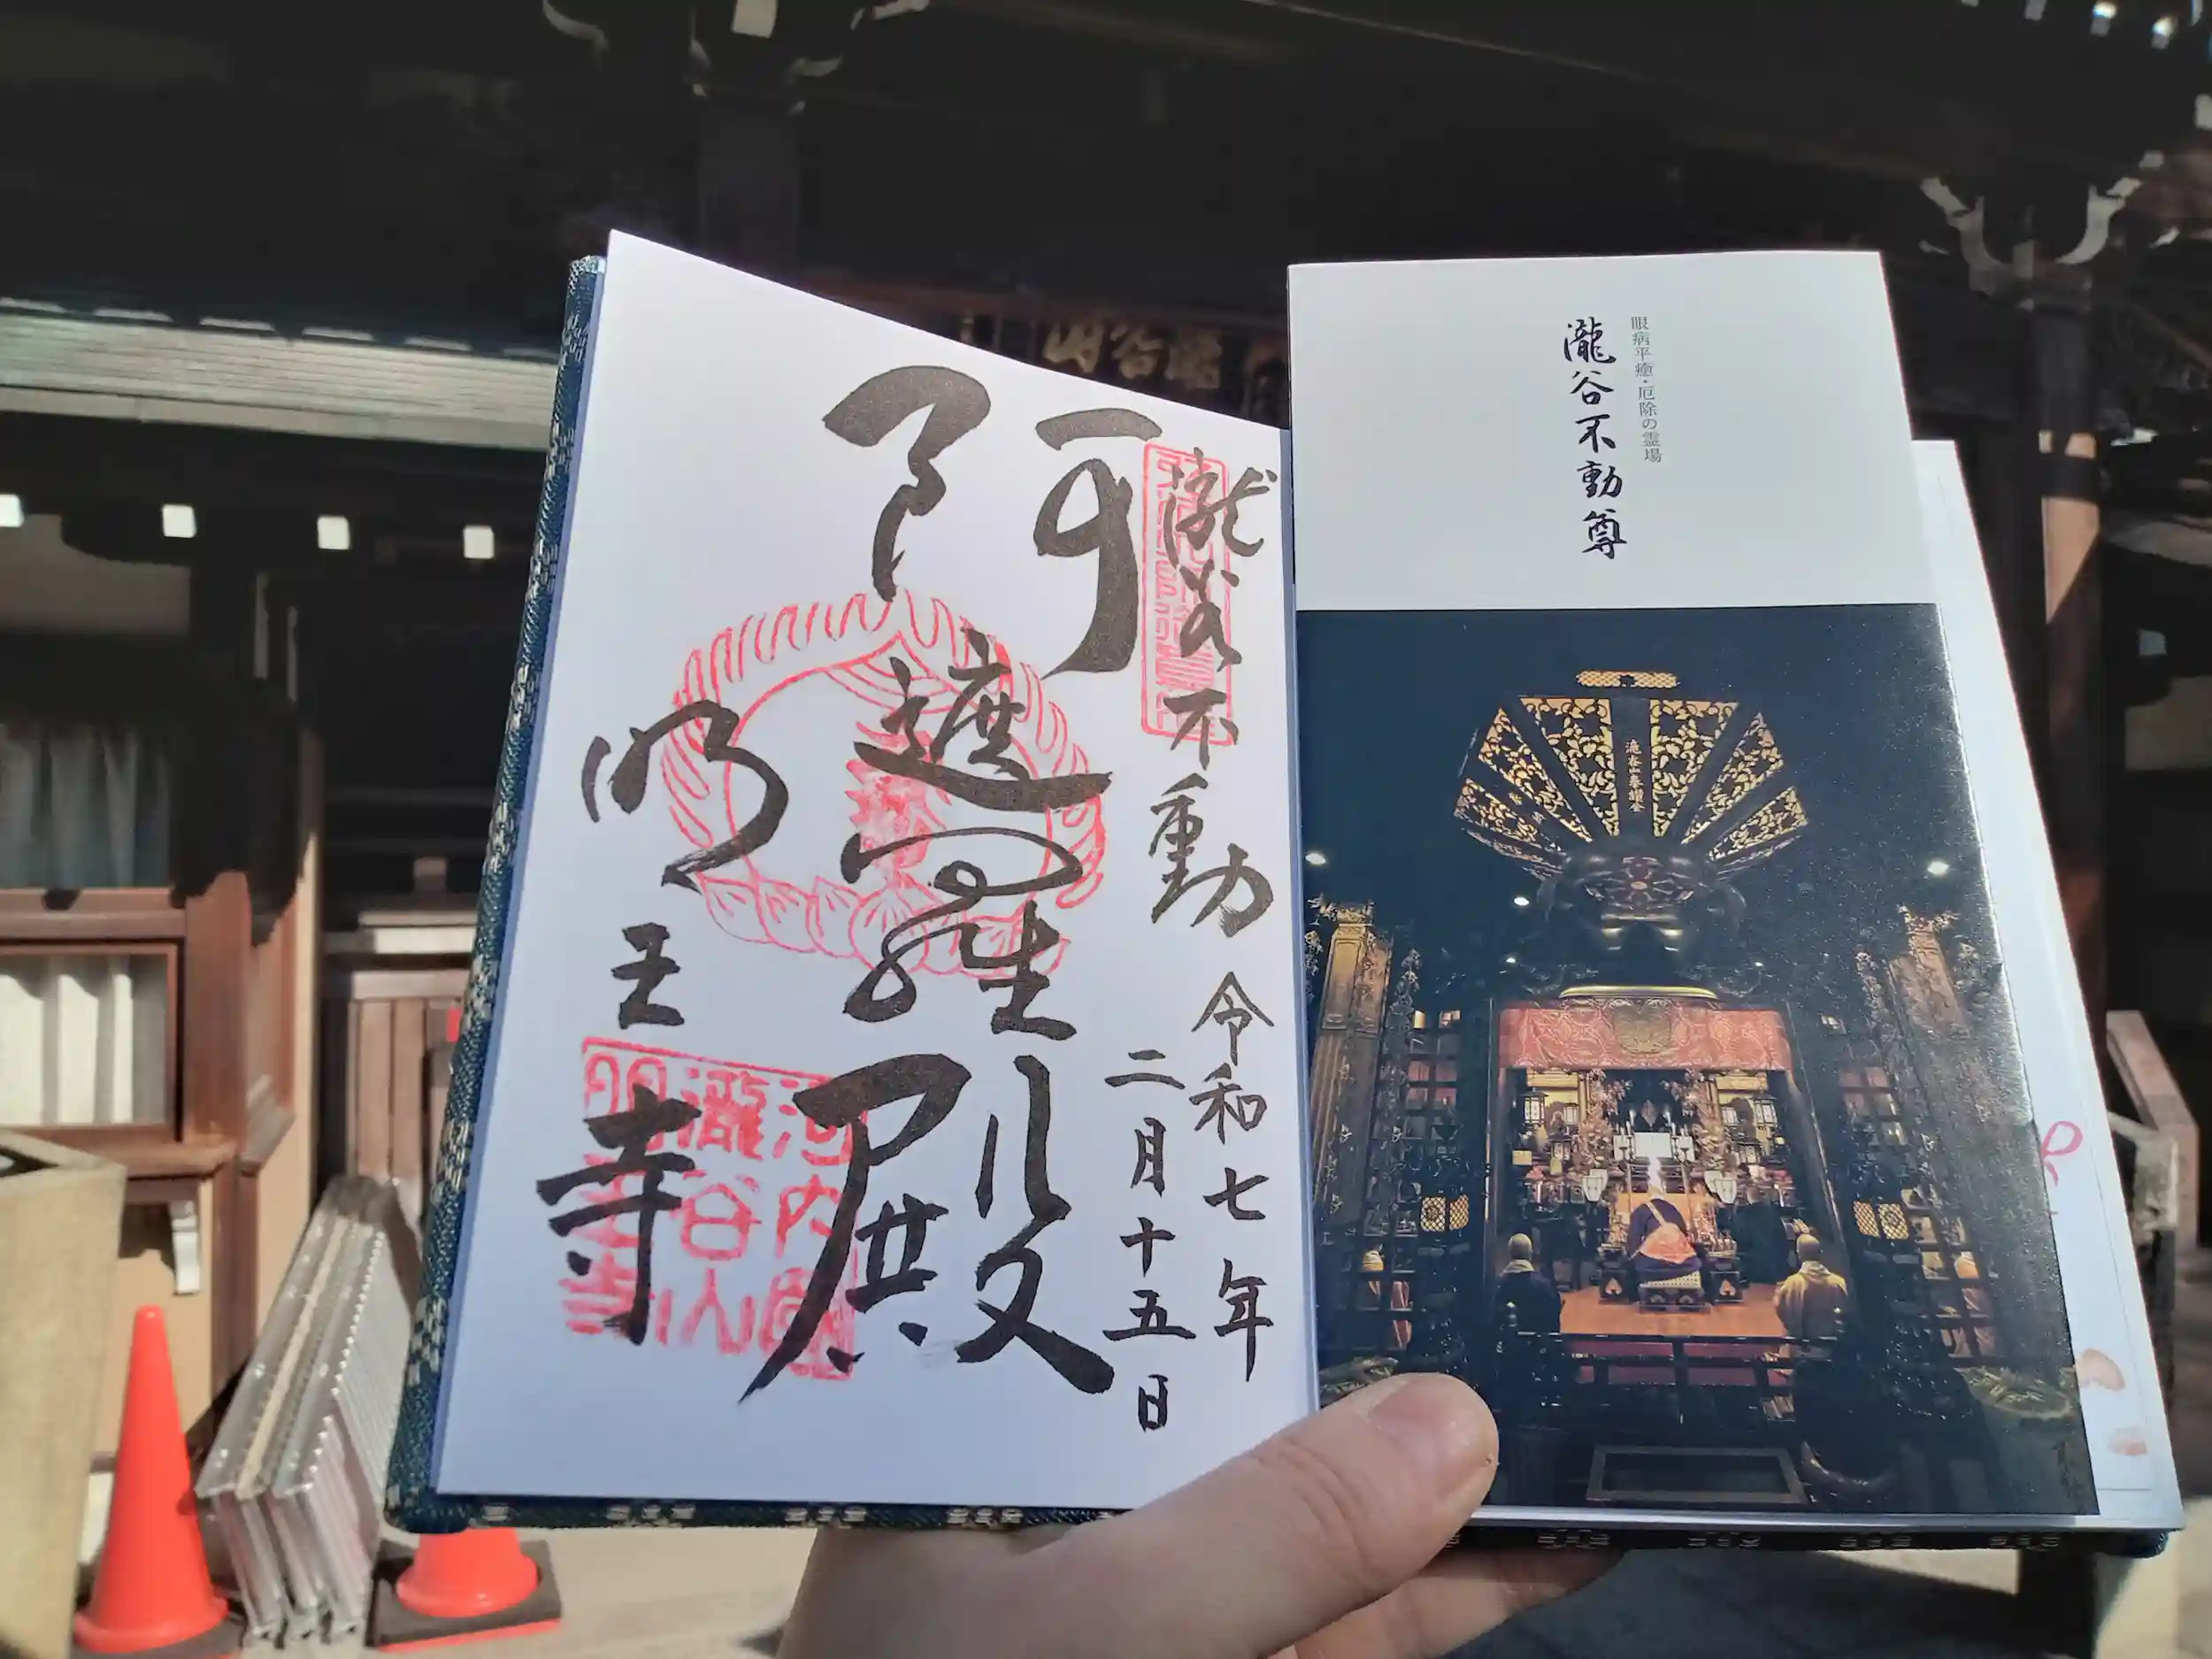 瀧谷不動
令和七年
二月十五日
阿遮羅殿
明王寺
河内國
瀧谷山
明王寺
眼病平癒・厄除の霊場
瀧谷不動尊
瀧谷山